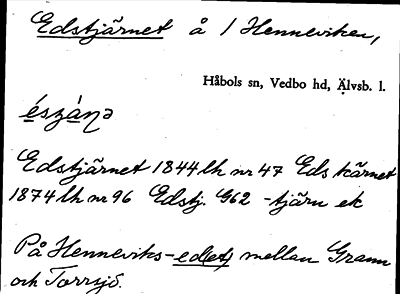 Edstjärnet å / Henneviken,
Håbols sn, Vedbo hd, Älvsb. l.
észànə
Edstjärnet 1844 lh nr 47 Eds kärnet
1874 lh nr 96 Edstj. G62 -tjärn ek
På Henneviks-ed(et) mellan Grann
och Torrsjö.